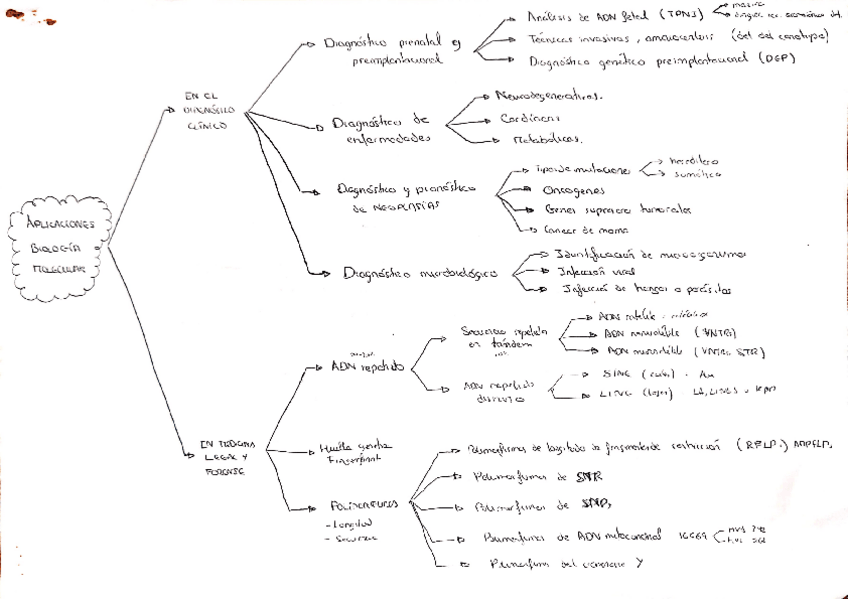 APLICACIONES
BIOLOGÍA
MOLECULAR
EN EL
DIAGNÓSTICO
CLÍNICO
Diagnóstico prenatal y
preimplantacional
Análisis de ADN fetal (TPNI)
Técnicas invasivas, amniocentesis (det del cariotipo)
Diagnóstico genético preimplantacional (DGP)
Diagnósticos de
enfermedades
Neurodegenerativas.
Cardíacas
Metabólicas.
Diagnóstico y pronóstico
de NEOPLASIAS
Tipos de mutaciones
somática
Oncogenes
Genes supresores tumorales
Cancer de mama
Diagnóstico microbiológico
Identificación de microorganismos
Infección viral
Infección de hongos o parásitos
EN MEDICINA
LEGAL Y
FORENSE
ADN repetido
Secuencias repetidas
en tándem
ADN satélite
ADN minisatélite (VNTRs)
ADN microsatélite (VNTRs, STR)
ADN repetido
disperso
SINE (cortos)
LINE (largos)
Huella genética
Fingerprint
POLIMORFISMOS
- Longitud
- Secuencia
Polimorfismos de longitud de fragmentos de restricción (RFLP)
Polimorfismos de STR
Polimorfismos de SNPs
Polimorfismos de ADN mitocondrial 16569
Polimorfismos del cromosoma Y